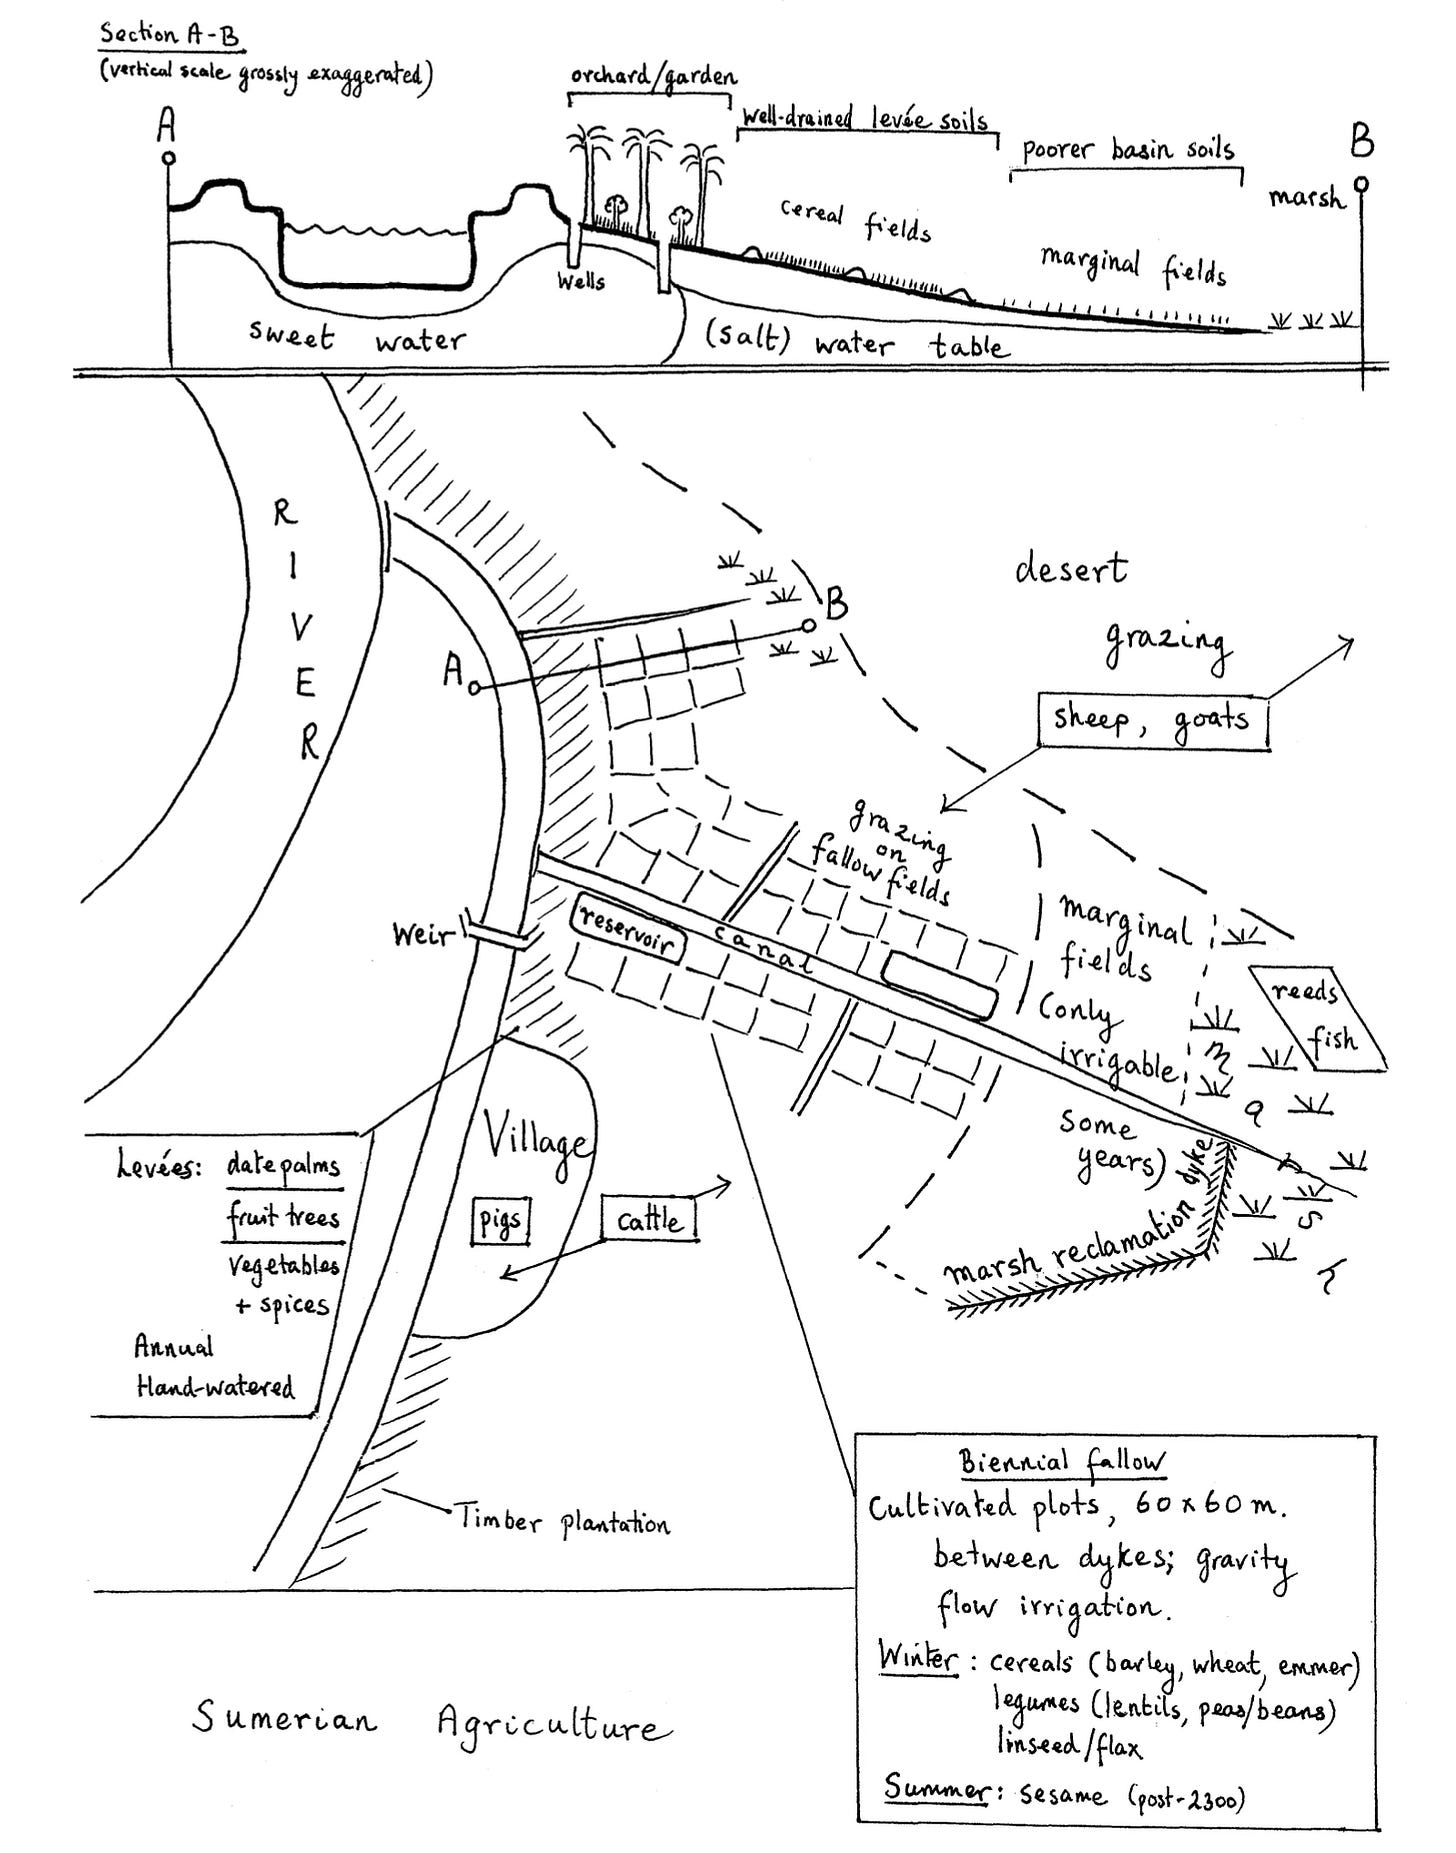 Section A-B
(vertical scale grossly exaggerated)
orchard/garden
A
well-drained levée soils
B
poorer basin soils
marsh
cereal fields
marginal fields
Wells
sweet water
(salt) water table
RIVER
desert
B
grazing
A
sheep, goats
grazing
on
fallow fields
marginal
fields
(only
irrigable
some
years)
reservoir
canal
Weir
reeds
fish
marsh
Village
pigs
cattle
marsh reclamation dyke
Levées: date palms
fruit trees
vegetables
+ spices
Annual
Hand-watered
Timber plantation
Biennial fallow
Cultivated plots, 60 x 60 m.
between dykes; gravity
flow irrigation.
Winter: cereals (barley, wheat, emmer)
legumes (lentils, peas/beans)
linseed/flax
Summer: sesame (post-2300)
Sumerian Agriculture